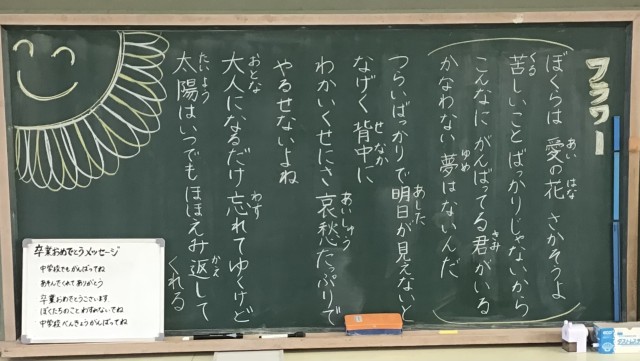 フラワー
ぼくらは 愛の花 さかそうよ
あい はな
苦しいことばっかりじゃないから
くる
こんなに がんばってる君がいる
きみ
かなわない 夢はないんだ
ゆめ
つらいばっかりで明日が見えないと
あした
なげく 背中に
せなか
わかいくせにさ 哀愁たっぷりで
あいしゅう
やるせないよね
大人になるだけ 忘れてゆくけど
おとな わす
太陽はいつでもほほえみ返して
たいよう かえ
くれる
卒業おめでとうメッセージ
中学校でもがんばってね
あそんでくれてありがとう
卒業おめでとうございます
ぼくたちのことわすれないでね
中学校べんきょうがんばってね